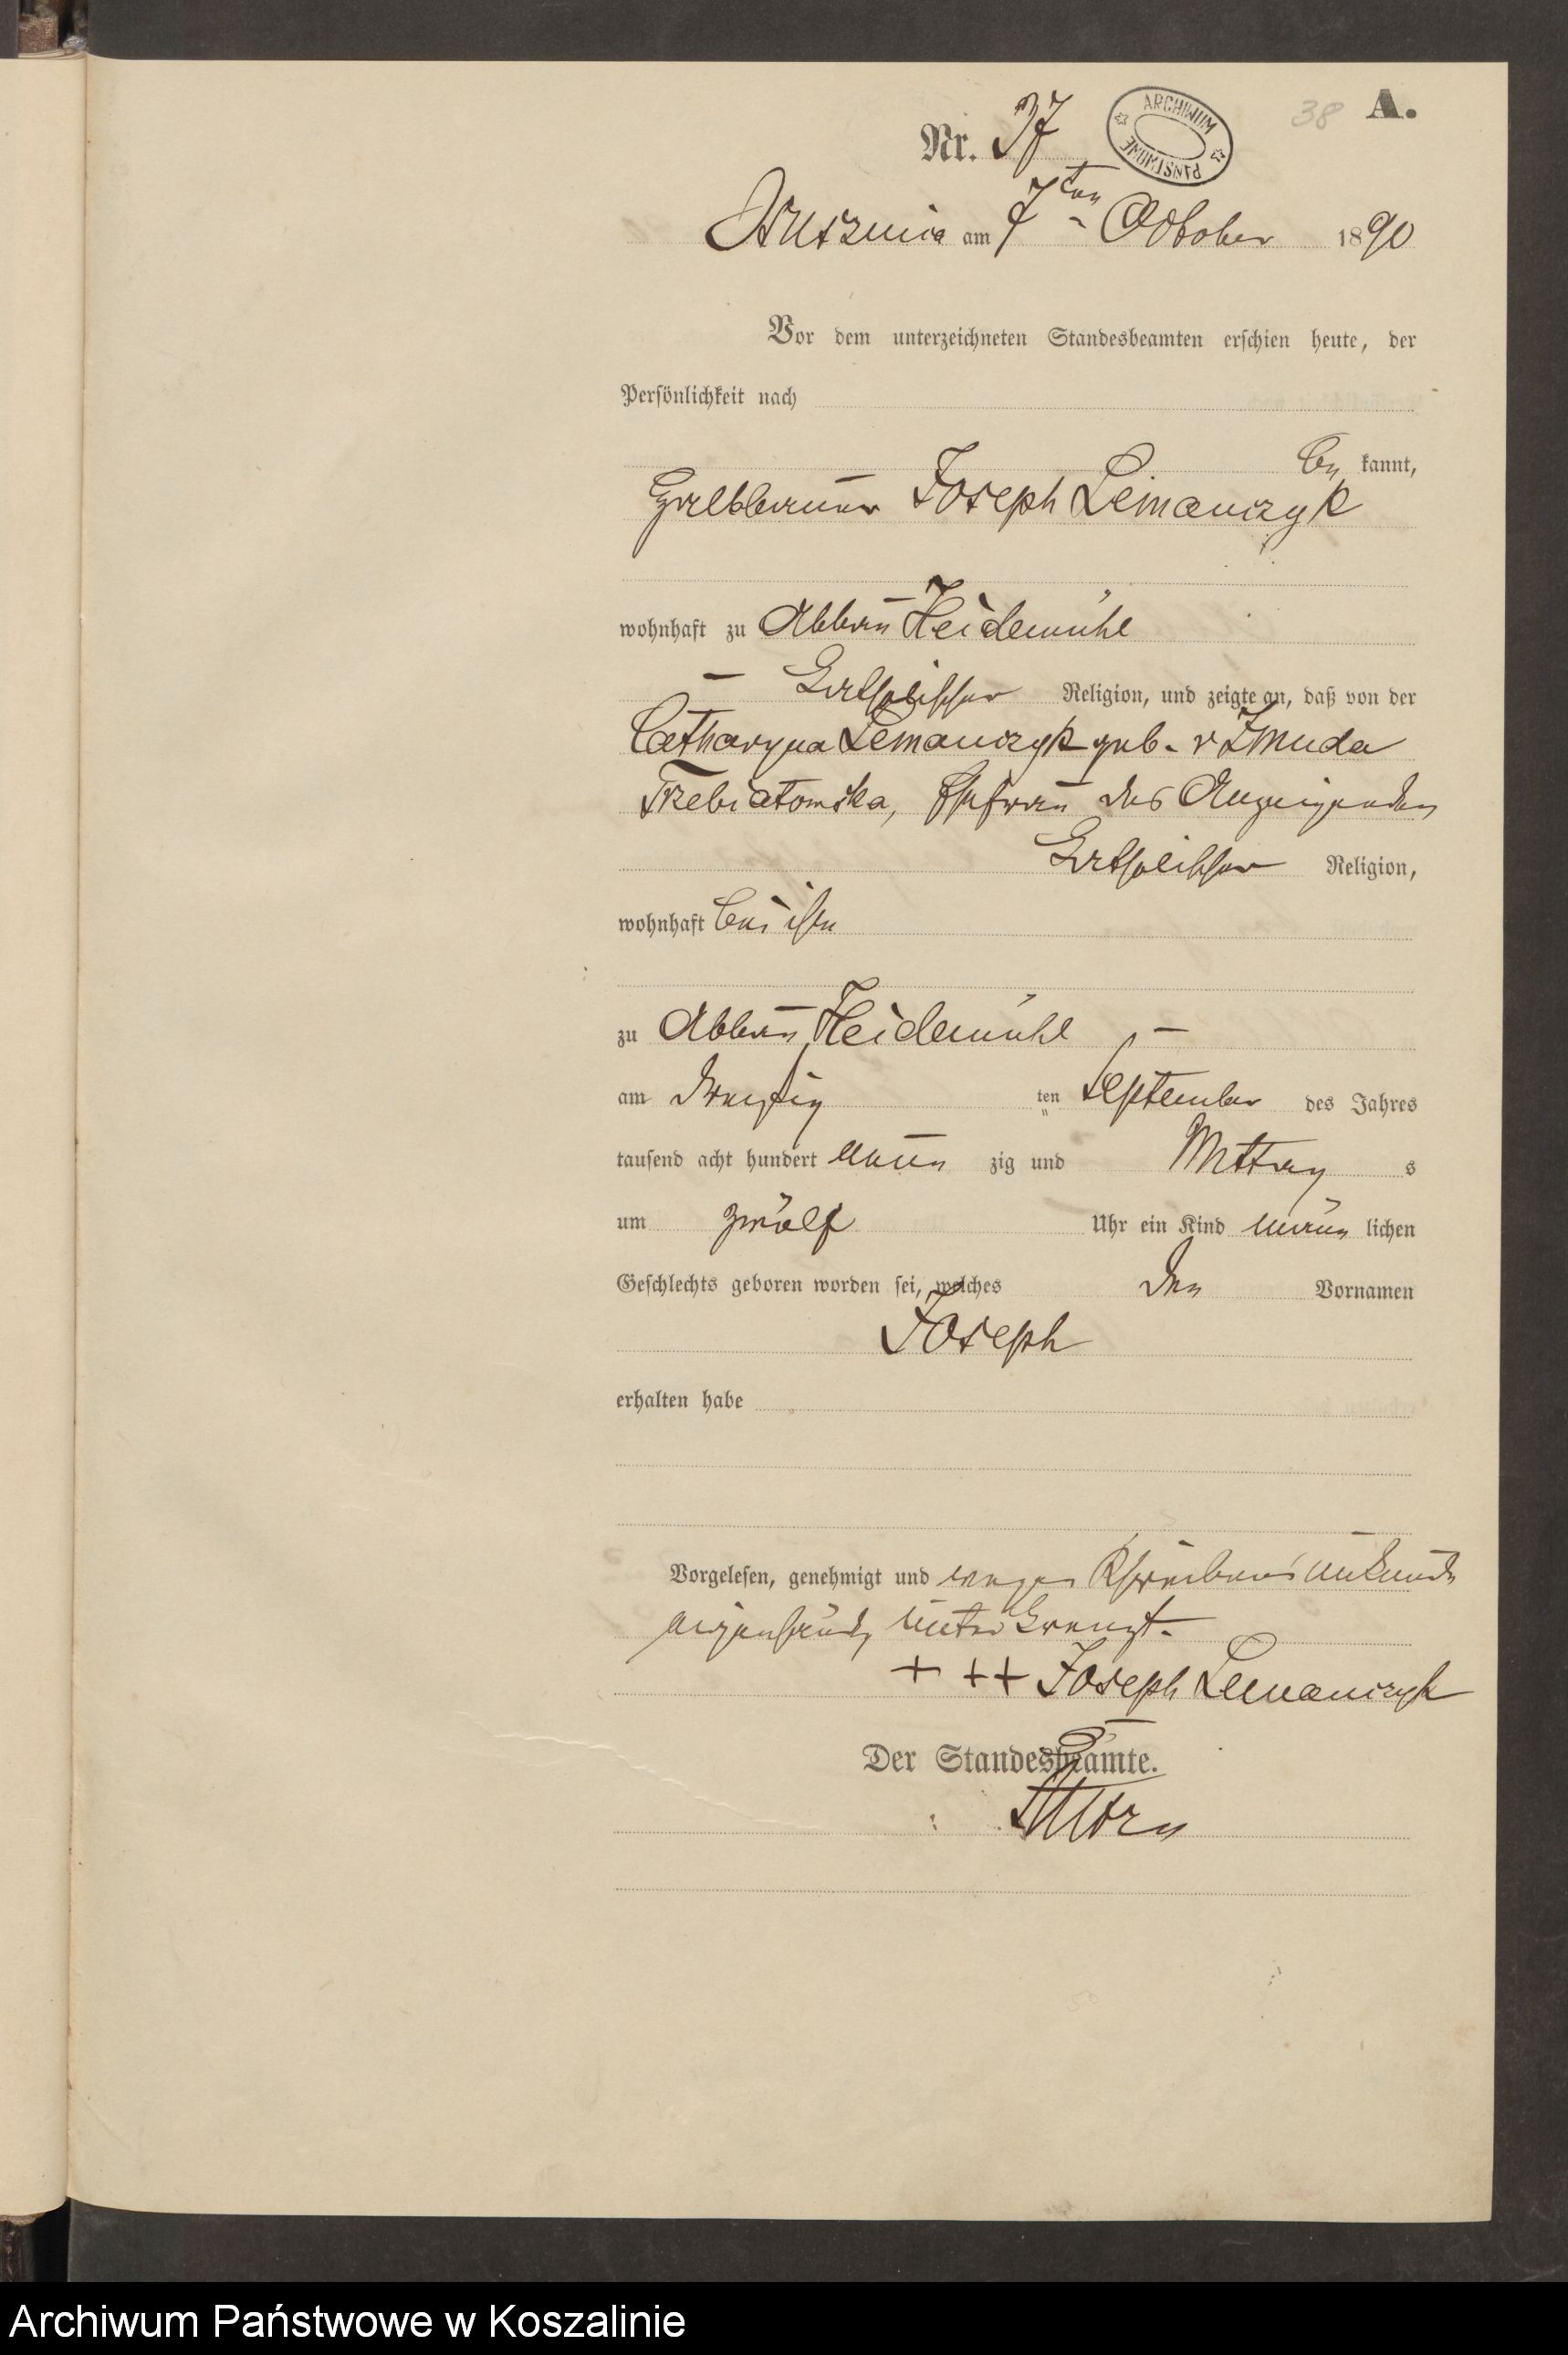 38 A.
Nr. 37
ARCHIWUM PAŃSTWOWE
am 7ten October 1890
Vor dem unterzeichneten Standesbeamten erschien heute, der
Persönlichkeit nach
be kannt,
Halbbauer Joseph Lemanczyk
wohnhaft zu Abbau Heidemühl
katholischer Religion, und zeigte an, daß von der
Catharyna Lemanczyk geb. v Zmuda
Trzebiatowska, Ehefrau des Anzeigenden
katholischer Religion,
wohnhaft bei ihm
zu Abbau Heidemühl
am dreißig ten September des Jahres
tausend acht hundert neun zig und Mittag s
um zwölf Uhr ein Kind männ lichen
Geschlechts geboren worden sei, welches den Vornamen
Joseph
erhalten habe
Vorgelesen, genehmigt und wegen Schreibens unkunde
eigenhändig unterkreuzt.
+ ++ Joseph Lemanczyk
Der Standesbeamte.
Archiwum Państwowe w Koszalinie